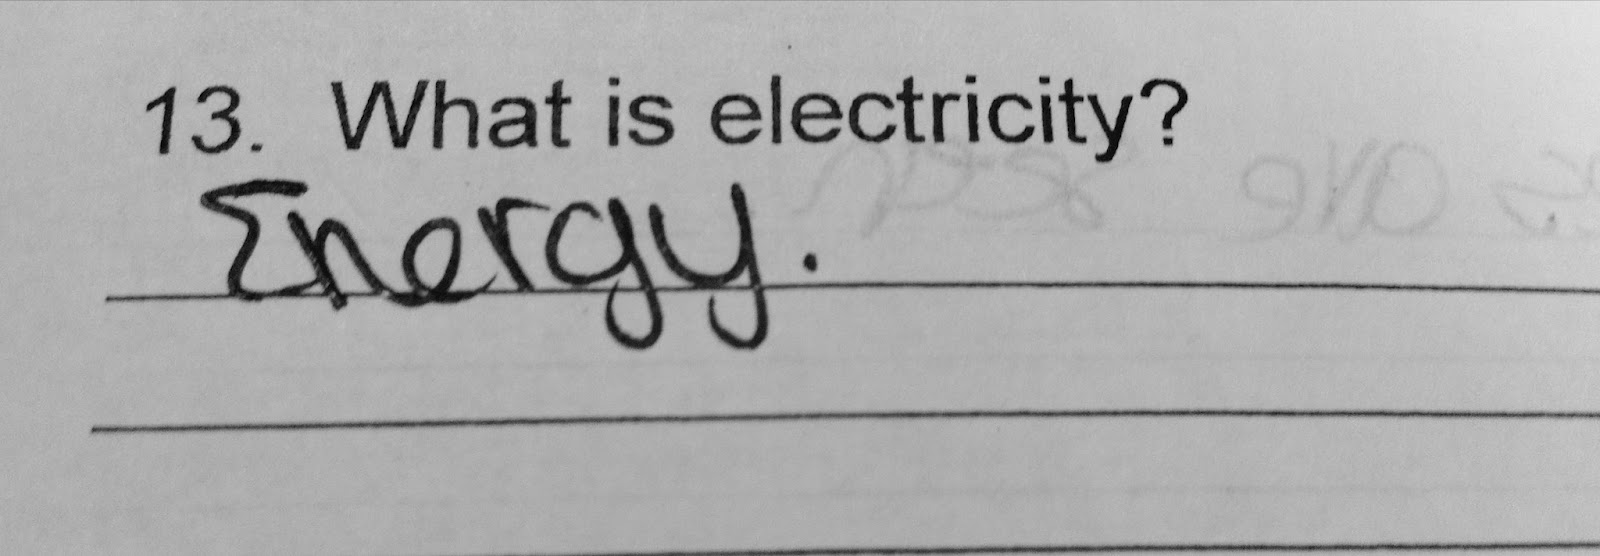 13. What is electricity?
Energy.